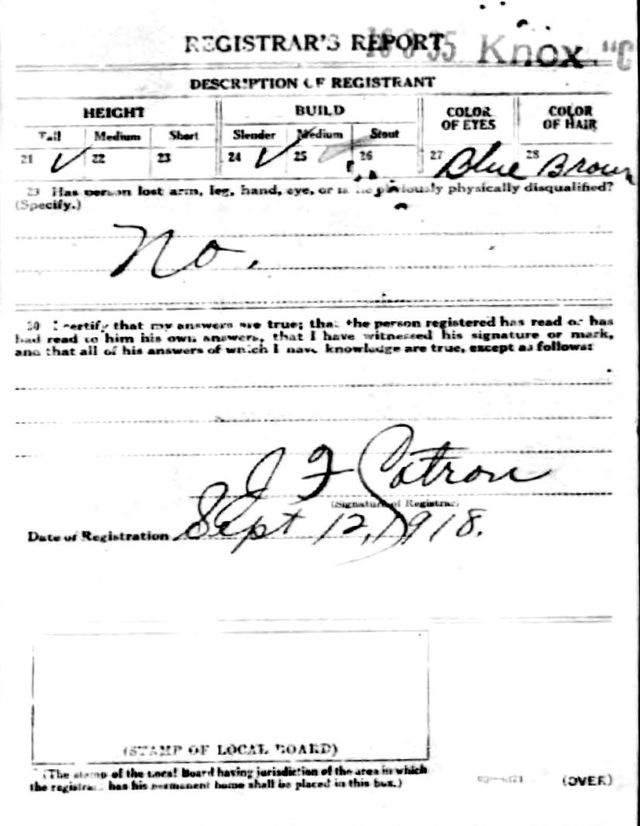 REGISTRAR'S REPORT Knox. "C
DESCRIPTION OF REGISTRANT
HEIGHT BUILD COLOR OF EYES COLOR OF HAIR
Tall Medium Short Slender Medium Stout
21 ✓ 22 23 24 ✓ 25 26 27 Blue 28 Brown
29 Has person lost arm, leg, hand, eye, or is he obviously physically disqualified?
(Specify.)
No.
30 I certify that my answers are true; that the person registered has read or has
had read to him his own answers, that I have witnessed his signature or mark,
and that all of his answers of which I have knowledge are true, except as follows:
J F Catron
(Signature of Registrar)
Date of Registration Sept 12, 1918.
(STAMP OF LOCAL BOARD)
(The stamp of the Local Board having jurisdiction of the area in which
the registrant has his permanent home shall be placed in this box.)
(OVER)